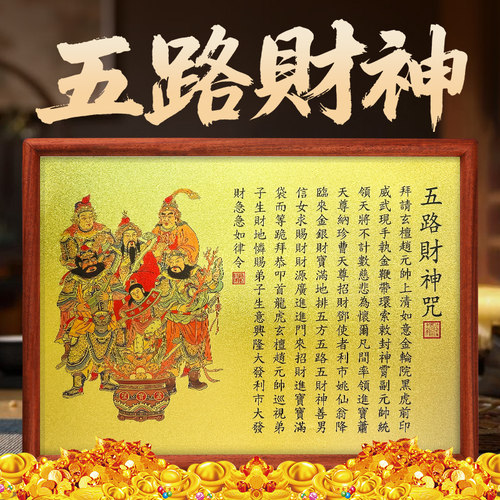 五路財神
五路財神咒
拜請玄壇趙元帥上清如意金輪院黑虎前印
威武現手執金鞭帶環索敕封神霄副元帥統
領天將不計數慈悲為懷爾凡間率領進寶蕭
天尊納珍曹天尊招財鄧使者利市姚仙翁降
臨來金銀財寶滿地排五方五路五財神善男
信女求賜財財源廣進進門來招財進寶寶滿
袋而等跪拜恭叩首龍虎玄壇趙元帥巡視弟
子生財地憐賜弟子生意興隆大發利市大發
財急急如律令